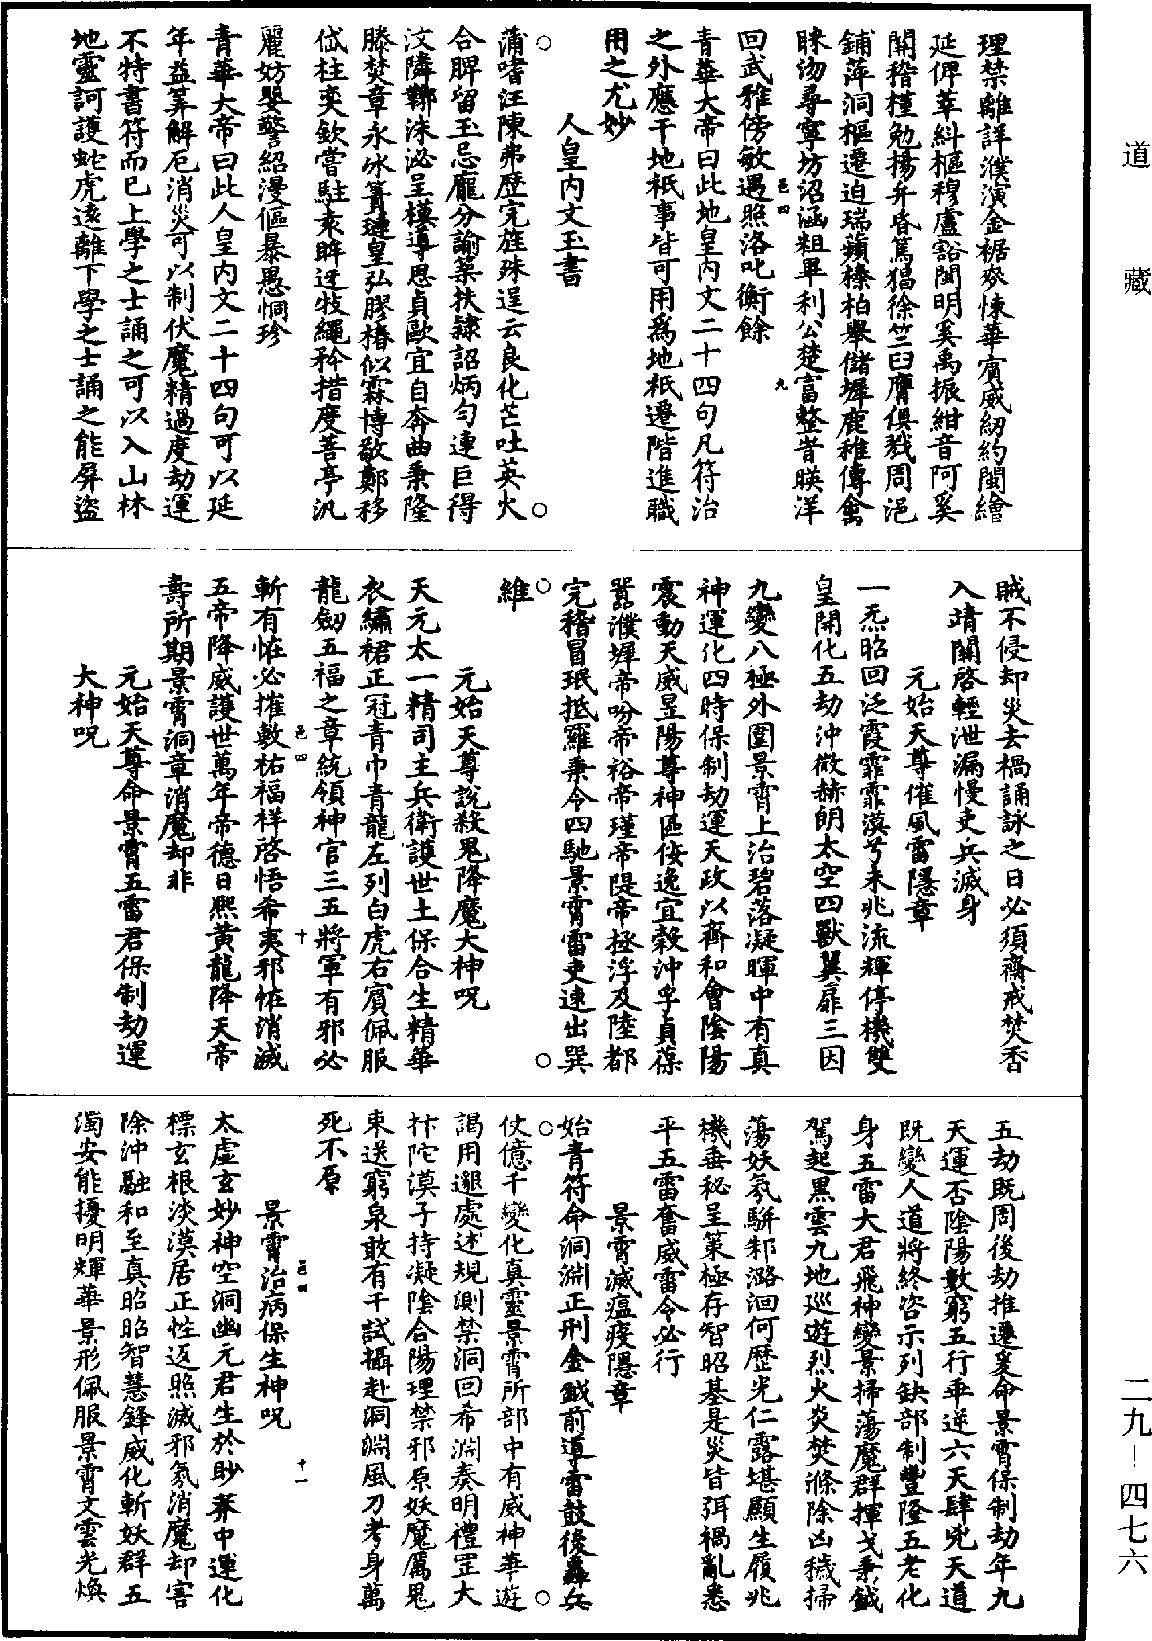 道藏
理禁離詳濮演金裾麥悚華賓威紉約閩繪
延俾莘糾樞穆盧豁閶明奚禹振紺音阿奚
關稽槿勉揚弁昏篤猖徐竺臼膺俱戣周浥
鋪萍洞樞遷迫瑞蘋榛柏舉儲墀鹿稚傳禽
睐沕尋寧坊沼涵粗畢利公楚富整苛朠洋
回武雅傍敏遇照洛叱衡餘
青華大帝曰此地皇内文二十四句凡符治
之外應干地祇事皆可用爲地祇遷階進職
用之尤妙
人皇内文玉書
蒲嗜汪陳弗歷完旌殊逞云良化芒吐英火
合脾留玉忌龐分諭葉扶隷詔炳勻連巨得
汶隣鞹洙泌呈模導恩貞歐宜自奔曲秉隆
滕焚章永冰筭璉皇弘膠椿似霖博敬鄭移
岱柱奕欽嘗駐束眸逕牧繩矜措度菩亭汎
麗妨嬰警紹漫傴暴愚恫珍
青華大帝曰此人皇内文二十四句可以延
年益筭解厄消災可以制伏魔精過度劫運
不特書符而已上學之士誦之可以入山林
地靈訶護蛇虎遠離下學之士誦之能屏盜
賊不侵却災去禍誦詠之日必須齋戒焚香
入靖關啓輕泄漏慢吏兵滅身
元始天尊催風雷隱章
一炁昭回泛霞霏霏漠兮未兆流輝停機雙
皇開化五劫沖微赫朗太空四獸翼扉三因
九變八極外圍景霄上治碧落凝暉中有真
神運化四時保制劫運天政以齊和會陰陽
震動天威昱陽尊神匹侒逸宜榖沖孚貞葆
嚣濮墀帝吩帝裕帝瑾帝隄帝拯浮及陸都
完稽冒珉抵羅秉令四馳景霄雷吏速出巽
維
元始天尊說殺鬼降魔大神呪
天元太一精司主兵衛護世土保合生精華
衣繡裙正冠青巾青龍左列白虎右賓佩服
龍劔五福之章統領神官三五將軍有邪必
斬有怪必摧敷祐福祥啓悟希夷邪怪消滅
五帝降威護世萬年帝德日熙黄龍降天帝
壽所期景霄洞章消魔却非
元始天尊命景霄五雷君保制劫運
大神呪
五劫既周後劫推遷爰命景霄保制劫年九
天運否陰陽數窮五行乖逆六天肆兇天道
既變人道將終咨示列鈌部制豐隆五老化
身五雷大君飛神變景掃蕩魔群揮戈秉鉞
駕起黒雲九地巡遊烈火炎焚滌除凶穢掃
蕩妖氛駢邾潞洄何歷光仁露堪顯生履兆
機垂秘呈策極存智昭基是災皆弭禍亂悉
平五雷奮威雷令必行
景霄滅瘟疫隱章
始青符命洞淵正刑金鉞前導雷鼓後轟兵
仗億千變化真靈景霄所部中有威神華遊
謁用邈處述規測禁洞回希淵奏明禮罡大
柈陀漠子持凝陰合陽理禁邪原妖魔厲鬼
束送窮泉敢有干試攝赴洞淵風刀考身萬
死不原
景霄治病保生神呪
太虛玄妙神空洞幽元君生於眇莽中運化
標玄根淡漠居正性返照滅邪氛消魔却害
除沖融和至真昭昭智慧鋒威化斬妖群五
濁安能擾明輝華景形佩服景霄文雲光煥
二九—四七六